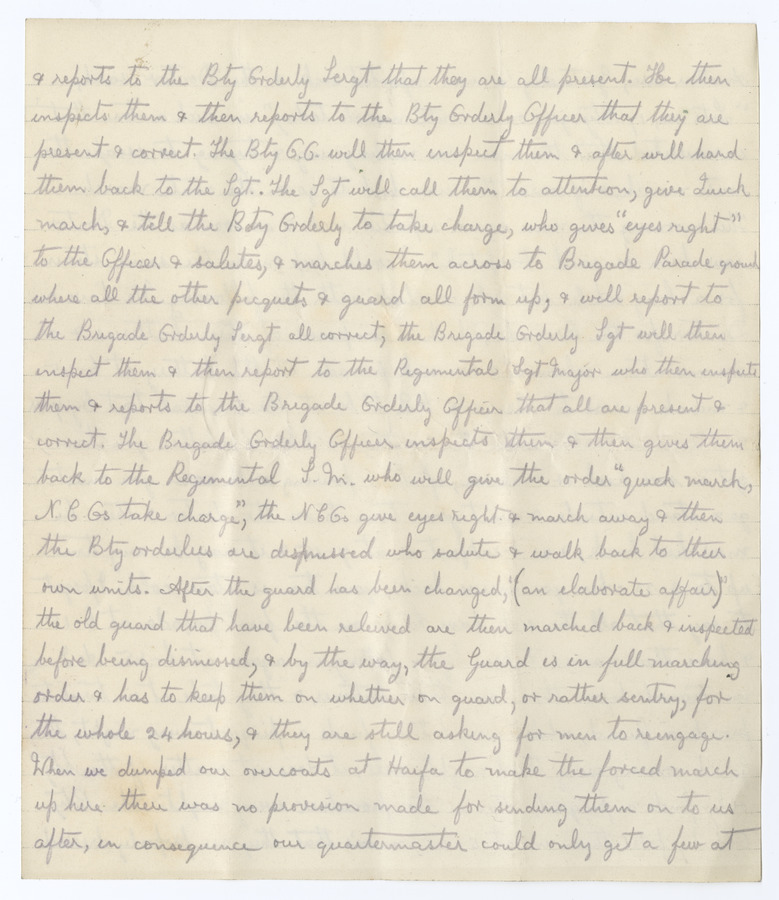 & reports to the Bty Orderly Sergt that they are all present. He then
inspects them & then reports to the Bty Orderly Officer that they are
present & correct. The Bty O.O. will then inspect them & after will hand
them back to the Sgt. The Sgt will call them to attention, give Quick
march, & tell the Bdy Orderly to take charge, who gives "eyes right"
to the Officer & salutes, & marches them across to Brigade Parade ground
where all the other picquets & guard all form up, & will report to
the Brigade Orderly Sergt all correct, the Brigade Orderly Sgt will then
inspect them & then report to the Regimental Sgt Major who then inspects
them & reports to the Brigade Orderly Officer that all are present &
correct. The Brigade Orderly Officer inspects them & then gives them
back to the Regimental S.M. who will give the order "quick march,
N.C.Os take charge", the NCOs give eyes right. & march away & then
the Bty orderlies are dismissed who salute & walk back to their
own units. After the guard has been changed, "(an elaborate affair)"
the old guard that have been releived are then marched back & inspected
before being dismissed, & by the way, the Guard is in full marching
order & has to keep them on whether on guard, or rather sentry, for
the whole 24 hours, & they are still asking for men to reengage.
When we dumped our overcoats at Haifa to make the forced march
up here there was no provision made for sending them on to us
after, in consequence our quartermaster could only get a few at